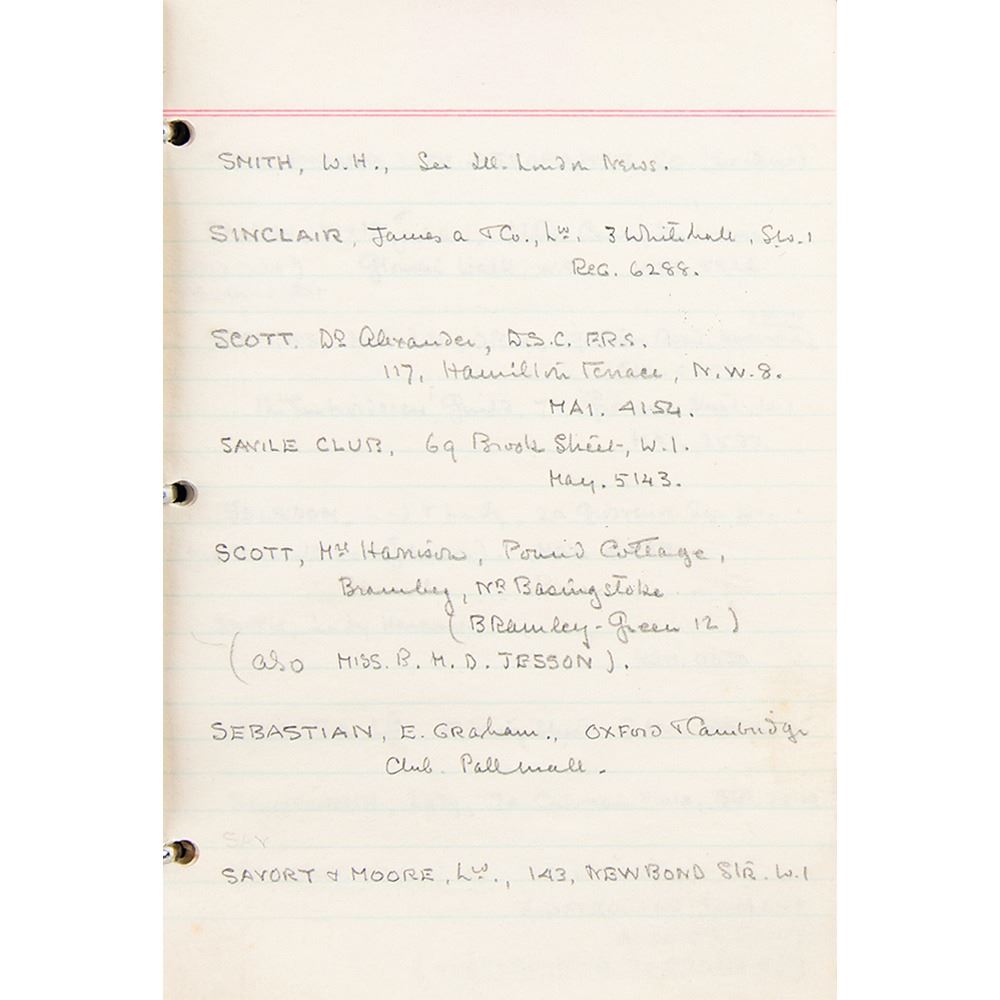 SMITH, W.H., See Ill. London News.
SINCLAIR, James A & Co., Ltd. 3 Whitehall, S.W.1
REG. 6288.
SCOTT. Dr Alexander, D.S.C. F.R.S.
117, Hamilton Terrace, N.W.8.
MAI. 4154.
SAVILE CLUB, 69 Brook Street, W.1.
May. 5143.
SCOTT, Mrs Harrison, Pound Cottage,
Bramley, Nr Basingstoke
(BRamley-Green 12)
(also MISS. B. M. D. JESSON).
SEBASTIAN, E. GRaham., OXFord & Cambridge
Club. Pall Mall.
SAY
SAVORY & MOORE, Ltd., 143, NEW BOND STR. W.1